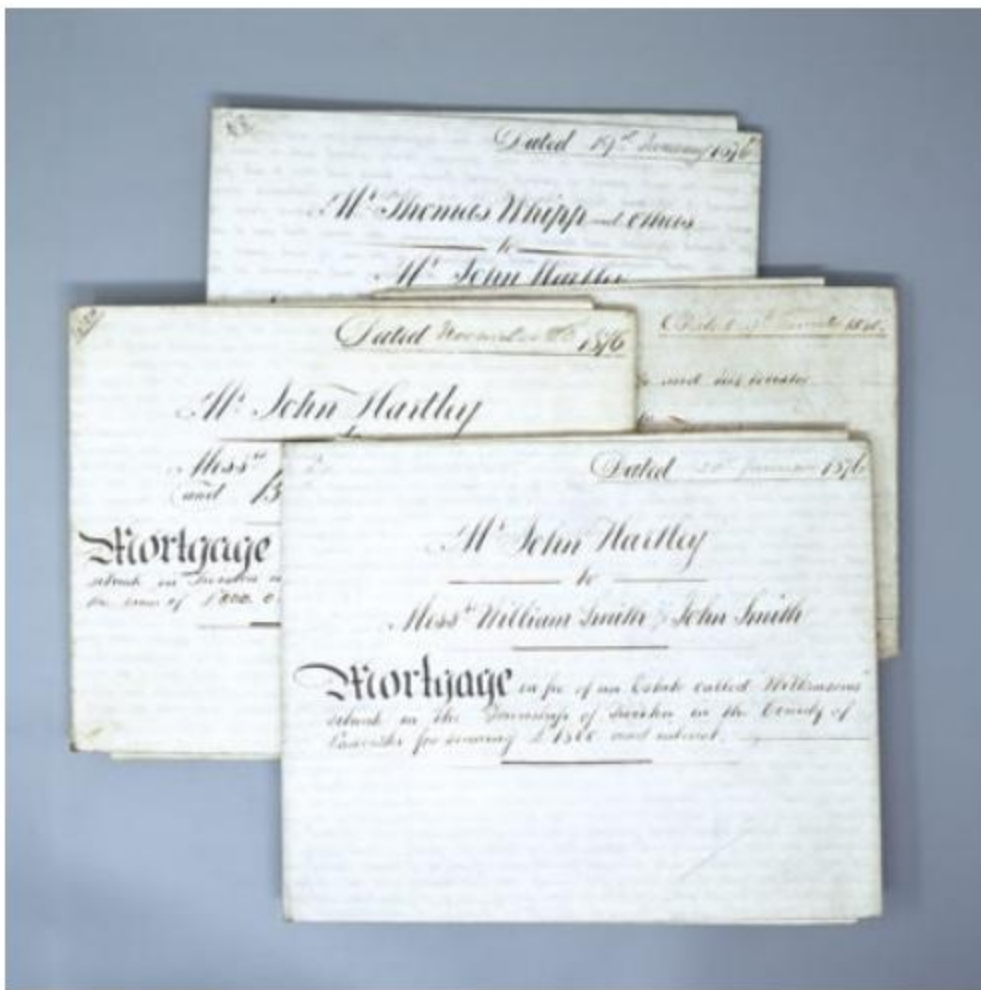 Dated 19th 1876
Mr Thomas Whipp and others
to
Mr John Hartley
Dated November 1876
Mr John Hartley
Messrs
and B
Mortgage
situate in
the sum of
Dated 1876
and his
Dated 1876
Mr John Hartley
to
Messrs William Smith & John Smith
Mortgage in fee of an Estate called Wilkinsons
situate in the Township of in the County of
Lancaster for securing £1500 and interest.